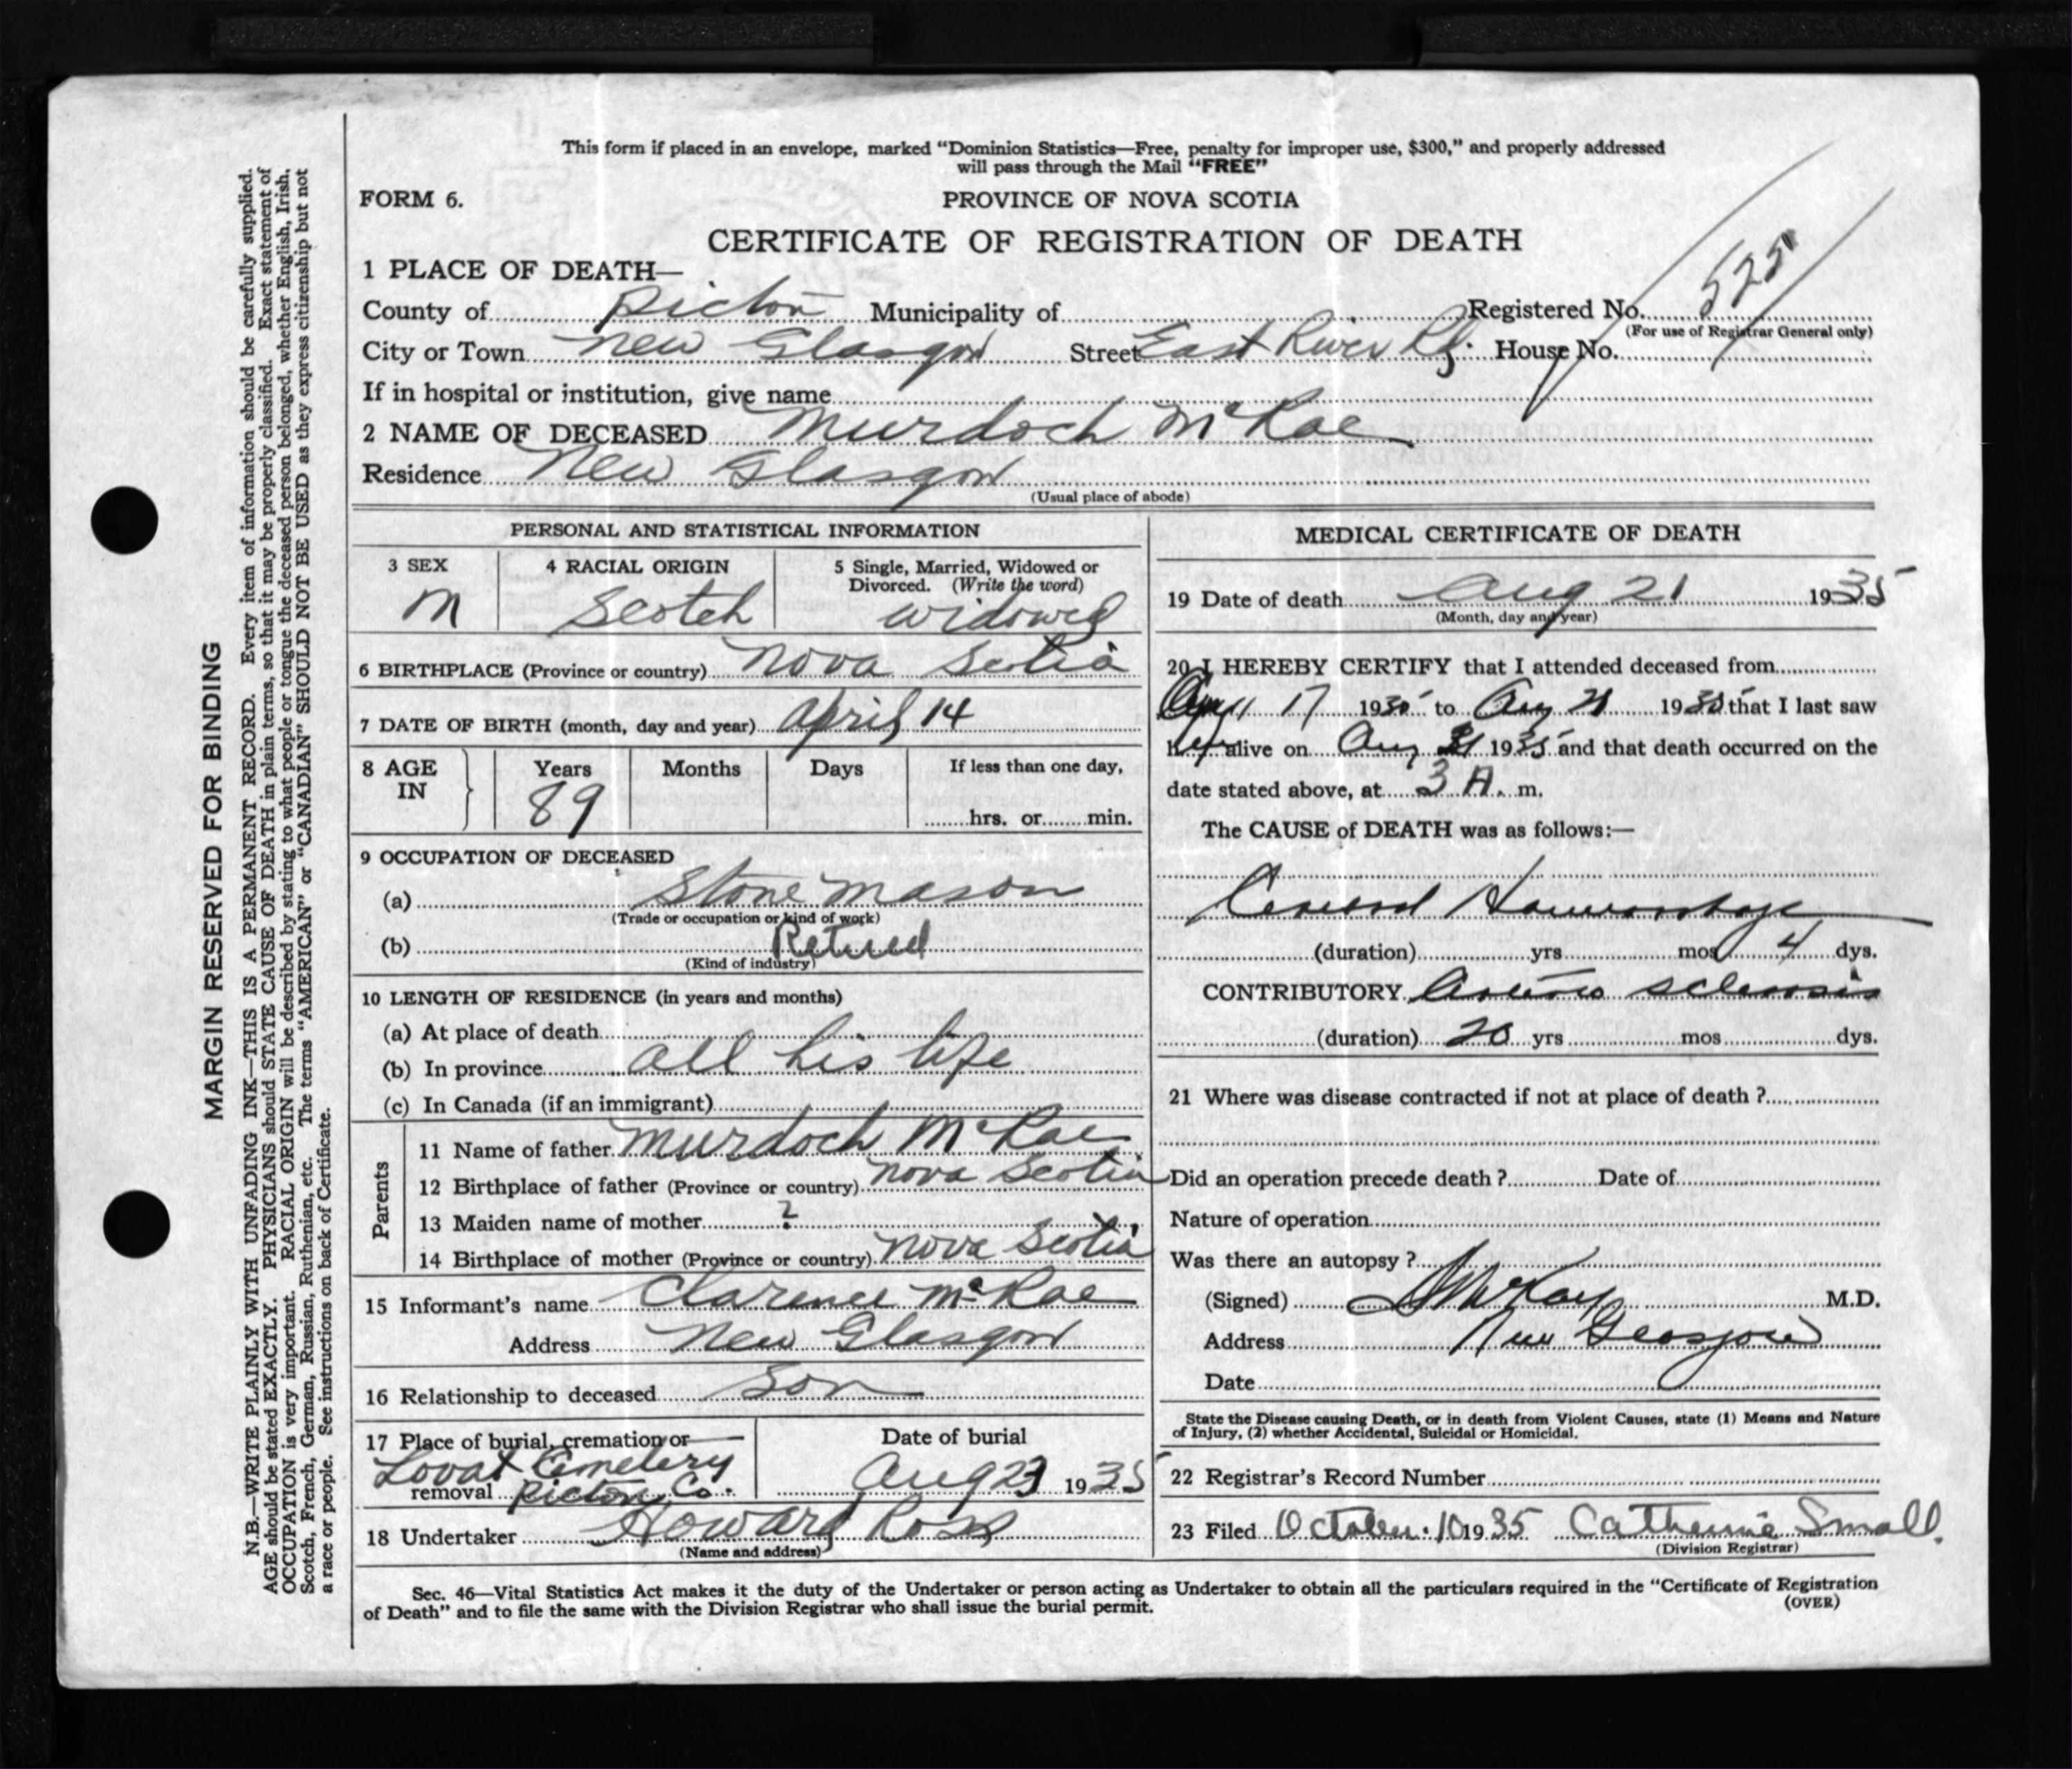 This form if placed in an envelope, marked “Dominion Statistics—Free, penalty for improper use, $300,” and properly addressed
will pass through the Mail “FREE”
FORM 6.
PROVINCE OF NOVA SCOTIA
CERTIFICATE OF REGISTRATION OF DEATH
1 PLACE OF DEATH—
County of Pictou Municipality of Registered No. 525
(For use of Registrar General only)
City or Town New Glasgow Street East River Rd. House No.
If in hospital or institution, give name
2 NAME OF DECEASED Murdoch McRae
Residence New Glasgow
(Usual place of abode)
PERSONAL AND STATISTICAL INFORMATION
3 SEX 4 RACIAL ORIGIN 5 Single, Married, Widowed or
Divorced. (Write the word)
M Scotch widowed
6 BIRTHPLACE (Province or country) Nova Scotia
7 DATE OF BIRTH (month, day and year) April 14
8 AGE IN Years Months Days If less than one day,
89 hrs. or min.
9 OCCUPATION OF DECEASED
(a) Stone mason
(Trade or occupation or kind of work)
(b) Retired
(Kind of industry)
10 LENGTH OF RESIDENCE (in years and months)
(a) At place of death
(b) In province all his life
(c) In Canada (if an immigrant)
Parents
11 Name of father Murdoch McRae
12 Birthplace of father (Province or country) Nova Scotia
13 Maiden name of mother ?
14 Birthplace of mother (Province or country) Nova Scotia
15 Informant's name Clarence McRae
Address New Glasgow
16 Relationship to deceased Son
17 Place of burial, cremation or Date of burial
Lovat Cemetery
removal Pictou Co. Aug 23 1935
18 Undertaker Howard Ross
(Name and address)
MEDICAL CERTIFICATE OF DEATH
19 Date of death Aug 21 1935
(Month, day and year)
20 I HEREBY CERTIFY that I attended deceased from
17 1935 to Aug 21 1935 that I last saw
h alive on Aug 21 1935 and that death occurred on the
date stated above, at 3 A. m.
The CAUSE of DEATH was as follows:—
Cerebral Haemorrhage
(duration) yrs mos 4 dys.
CONTRIBUTORY Arterio sclerosis
(duration) 20 yrs mos dys.
21 Where was disease contracted if not at place of death ?
Did an operation precede death ? Date of
Nature of operation
Was there an autopsy ?
(Signed) McKay M.D.
Address New Glasgow
Date
State the Disease causing Death, or in death from Violent Causes, state (1) Means and Nature
of Injury, (2) whether Accidental, Suicidal or Homicidal.
22 Registrar's Record Number
23 Filed October 10 1935 Catherine Small.
(Division Registrar)
Sec. 46—Vital Statistics Act makes it the duty of the Undertaker or person acting as Undertaker to obtain all the particulars required in the “Certificate of Registration
of Death” and to file the same with the Division Registrar who shall issue the burial permit.
(OVER)
MARGIN RESERVED FOR BINDING
N.B.—WRITE PLAINLY WITH UNFADING INK—THIS IS A PERMANENT RECORD. Every item of information should be carefully supplied.
AGE should be stated EXACTLY. PHYSICIANS should STATE CAUSE OF DEATH in plain terms, so that it may be properly classified. Exact statement of
OCCUPATION is very important. RACIAL ORIGIN will be described by stating to what people or tongue the deceased person belonged, whether English, Irish,
Scotch, French, German, Russian, Ruthenian, etc. The terms “AMERICAN” or “CANADIAN” SHOULD NOT BE USED as they express citizenship but not
a race or people. See instructions on back of Certificate.